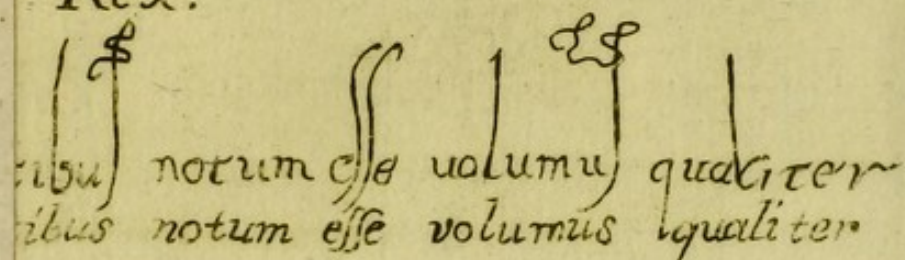 Rex.
tibus notum esse uolumus qualiter
ibus notum eſſe volumus qualiter